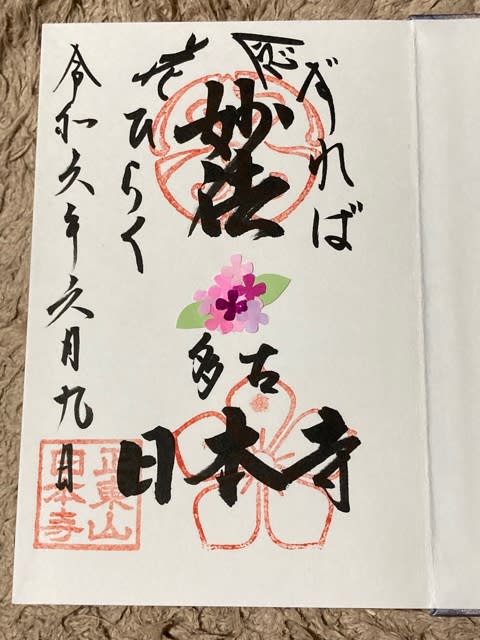 念ずれば
花ひらく
妙法
多古
日本寺
令和六年六月九日
正東山
日本寺